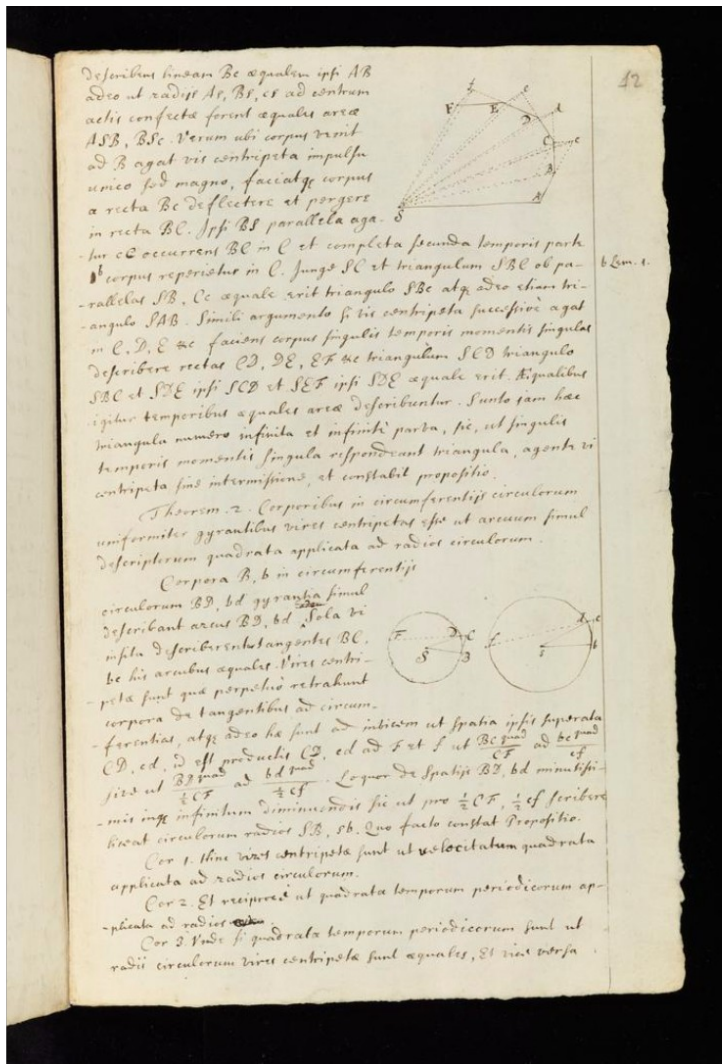 42
describens lineam Bc æqualem ipsi AB
adeo ut radijs AS, BS, cS ad centrum
actis confectæ forent æquales areæ
ASB, BSc. Verum ubi corpus venit
ad B agat vis centripeta impulsu
unico sed magno, faciatqꝫ corpus
a recta Bc deflectere et pergere
in recta BC. Ipsi BS parallela aga-
-tur cC occurrens BC in C et completa secunda temporis parte
b corpus reperietur in C. Junge SC et triangulum SBC ob pa-
b Lem. 1.
-rallelas SB, Cc æquale erit triangulo SBc atqꝫ adeo etiam tri-
-angulo SAB. Simili argumento si vis centripeta successivè agat
in C, D, E &c faciens corpus singulis temporis momentis singulas
describere rectas CD, DE, EF &c triangulum SCD triangulo
SBC et SDE ipsi SCD et SEF ipsi SDE æquale erit. Æqualibus
igitur temporibus æquales areæ describuntur. Sunto jam hæc
triangula numero infinita et infinitè parva, sic, ut singulis
temporis momentis singula respondeant triangula, agente vi
centripeta sine intermissione, et constabit propositio.
Theorem. 2. Corporibus in circumferentijs circulorum
uniformiter gyrantibus vires centripetas esse ut arcuum simul
descriptorum quadrata applicata ad radios circulorum.
Corpora B, b in circumferentijs
circulorum BD, bd gyrantia simul
describant arcus BD, bd. Sola vi
insita describerent tangentes BC,
bc his arcubus æquales. Vires centri-
-petæ sunt quæ perpetuò retrahunt
corpora de tangentibus ad circum-
-ferentias, atqꝫ adeo hæ sunt ad invicem ut spatia ipsis superata
CD, cd, id est productis CD, cd ad F et f ut BC quad/CF ad bc quad/cf
sive ut BD quad/½CF ad bd quad/½cf. Loquor de spatijs BD, bd minutissi-
-mis inqꝫ infinitum diminuendis sic ut pro ½CF, ½cf scribere
liceat circulorum radios SB, sb. Quo facto constat Propositio.
Cor 1. Hinc vires centripetæ sunt ut velocitatum quadrata
applicata ad radios circulorum.
Cor 2. Et reciprocè ut quadrata temporum periodicorum ap-
-plicata ad radios
Cor 3. Unde si quadrata temporum periodicorum sunt ut
radii circulorum vires centripetæ sunt æquales, Et vice versa
f
F
E
e
D
d
C
c
B
A
S
F
D
C
S
B
f
d
c
s
b